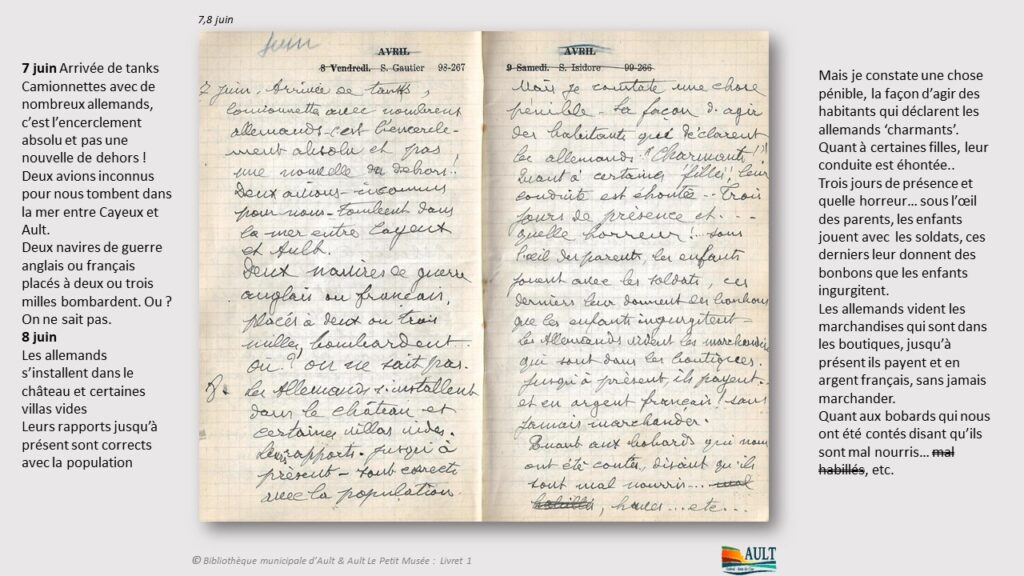 7,8 juin
7 juin Arrivée de tanks
Camionnettes avec de
nombreux allemands,
c’est l’encerclement
absolu et pas une
nouvelle de dehors !
Deux avions inconnus
pour nous tombent dans
la mer entre Cayeux et
Ault.
Deux navires de guerre
anglais ou français
placés à deux ou trois
milles bombardent. Ou ?
On ne sait pas.
8 juin
Les allemands
s’installent dans le
château et certaines
villas vides
Leurs rapports jusqu’à
présent sont corrects
avec la population
juin
AVRIL
8 Vendredi. S. Gautier 98-267
7 juin. Arrivée de tanks,
camionnettes avec nombreux
allemands c'est l'encercle-
ment absolu et pas
une nouvelle du dehors !
Deux avions - inconnus
pour nous - tombent dans
la mer entre Cayeux
et Ault.
Deux navires de guerre
anglais ou français,
placés à deux ou trois
milles, bombardent...
où ? on ne sait pas.
8. Les Allemands s'installent
dans le château et
certaines villas vides.
Leurs rapports jusqu'à
présent - sont corrects
avec la population.
AVRIL
9 Samedi. S. Isidore 99-266
Mais je constate une chose
pénible - la façon d'agir
des habitants qui déclarent
les allemands "charmants" !!
Quant à certaines filles, leur
conduite est éhontée - Trois
jours de présence et ...
quelle horreur !... sous
l'œil des parents, les enfants
jouent avec les soldats, ces
derniers leur donnent des bonbons
que les enfants ingurgitent -
les Allemands vident les marchandises
qui sont dans les boutiques.
jusqu'à présent, ils payent -
et en argent français ! sans
jamais marchander.
Quant aux bobards qui nous
ont été contés, disant qu'ils
sont mal nourris... mal
habillés, ... etc...
Mais je constate une chose
pénible, la façon d’agir des
habitants qui déclarent les
allemands ‘charmants’.
Quant à certaines filles, leur
conduite est éhontée..
Trois jours de présence et
quelle horreur… sous l’œil
des parents, les enfants
jouent avec les soldats, ces
derniers leur donnent des
bonbons que les enfants
ingurgitent.
Les allemands vident les
marchandises qui sont dans
les boutiques, jusqu’à
présent ils payent et en
argent français, sans jamais
marchander.
Quant aux bobards qui nous
ont été contés disant qu’ils
sont mal nourris… mal
habillés, etc.
© Bibliothèque municipale d’Ault & Ault Le Petit Musée : Livret 1
AULT